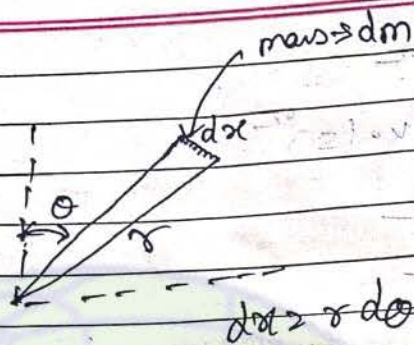 mass → dm
dx
θ
r
dx = r dθ